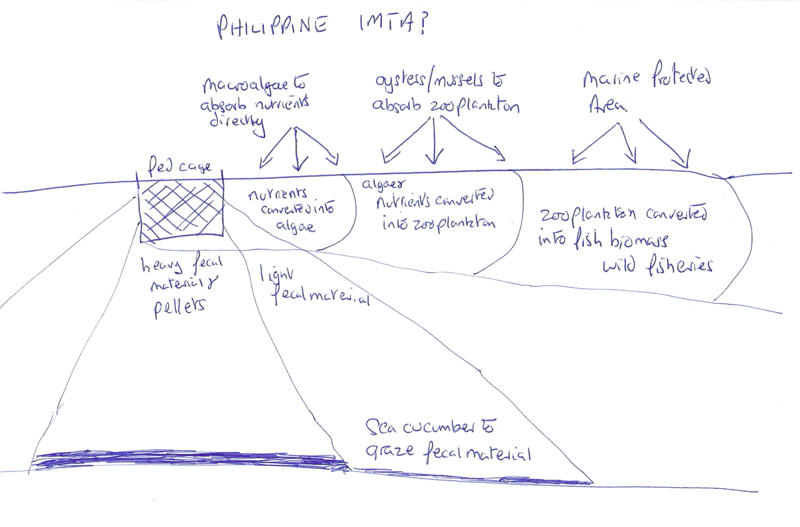 PHILIPPINE IMTA?
macroalgae to
absorb nutrients
directly
oysters/mussels to
absorb zooplankton
Marine Protected
Area
Fed cage
nutrients
converted into
algae
algae
nutrients converted
into zooplankton
zooplankton converted
into fish biomass
wild fisheries
heavy fecal
material &
pellets
light
fecal material
Sea cucumber to
graze fecal material